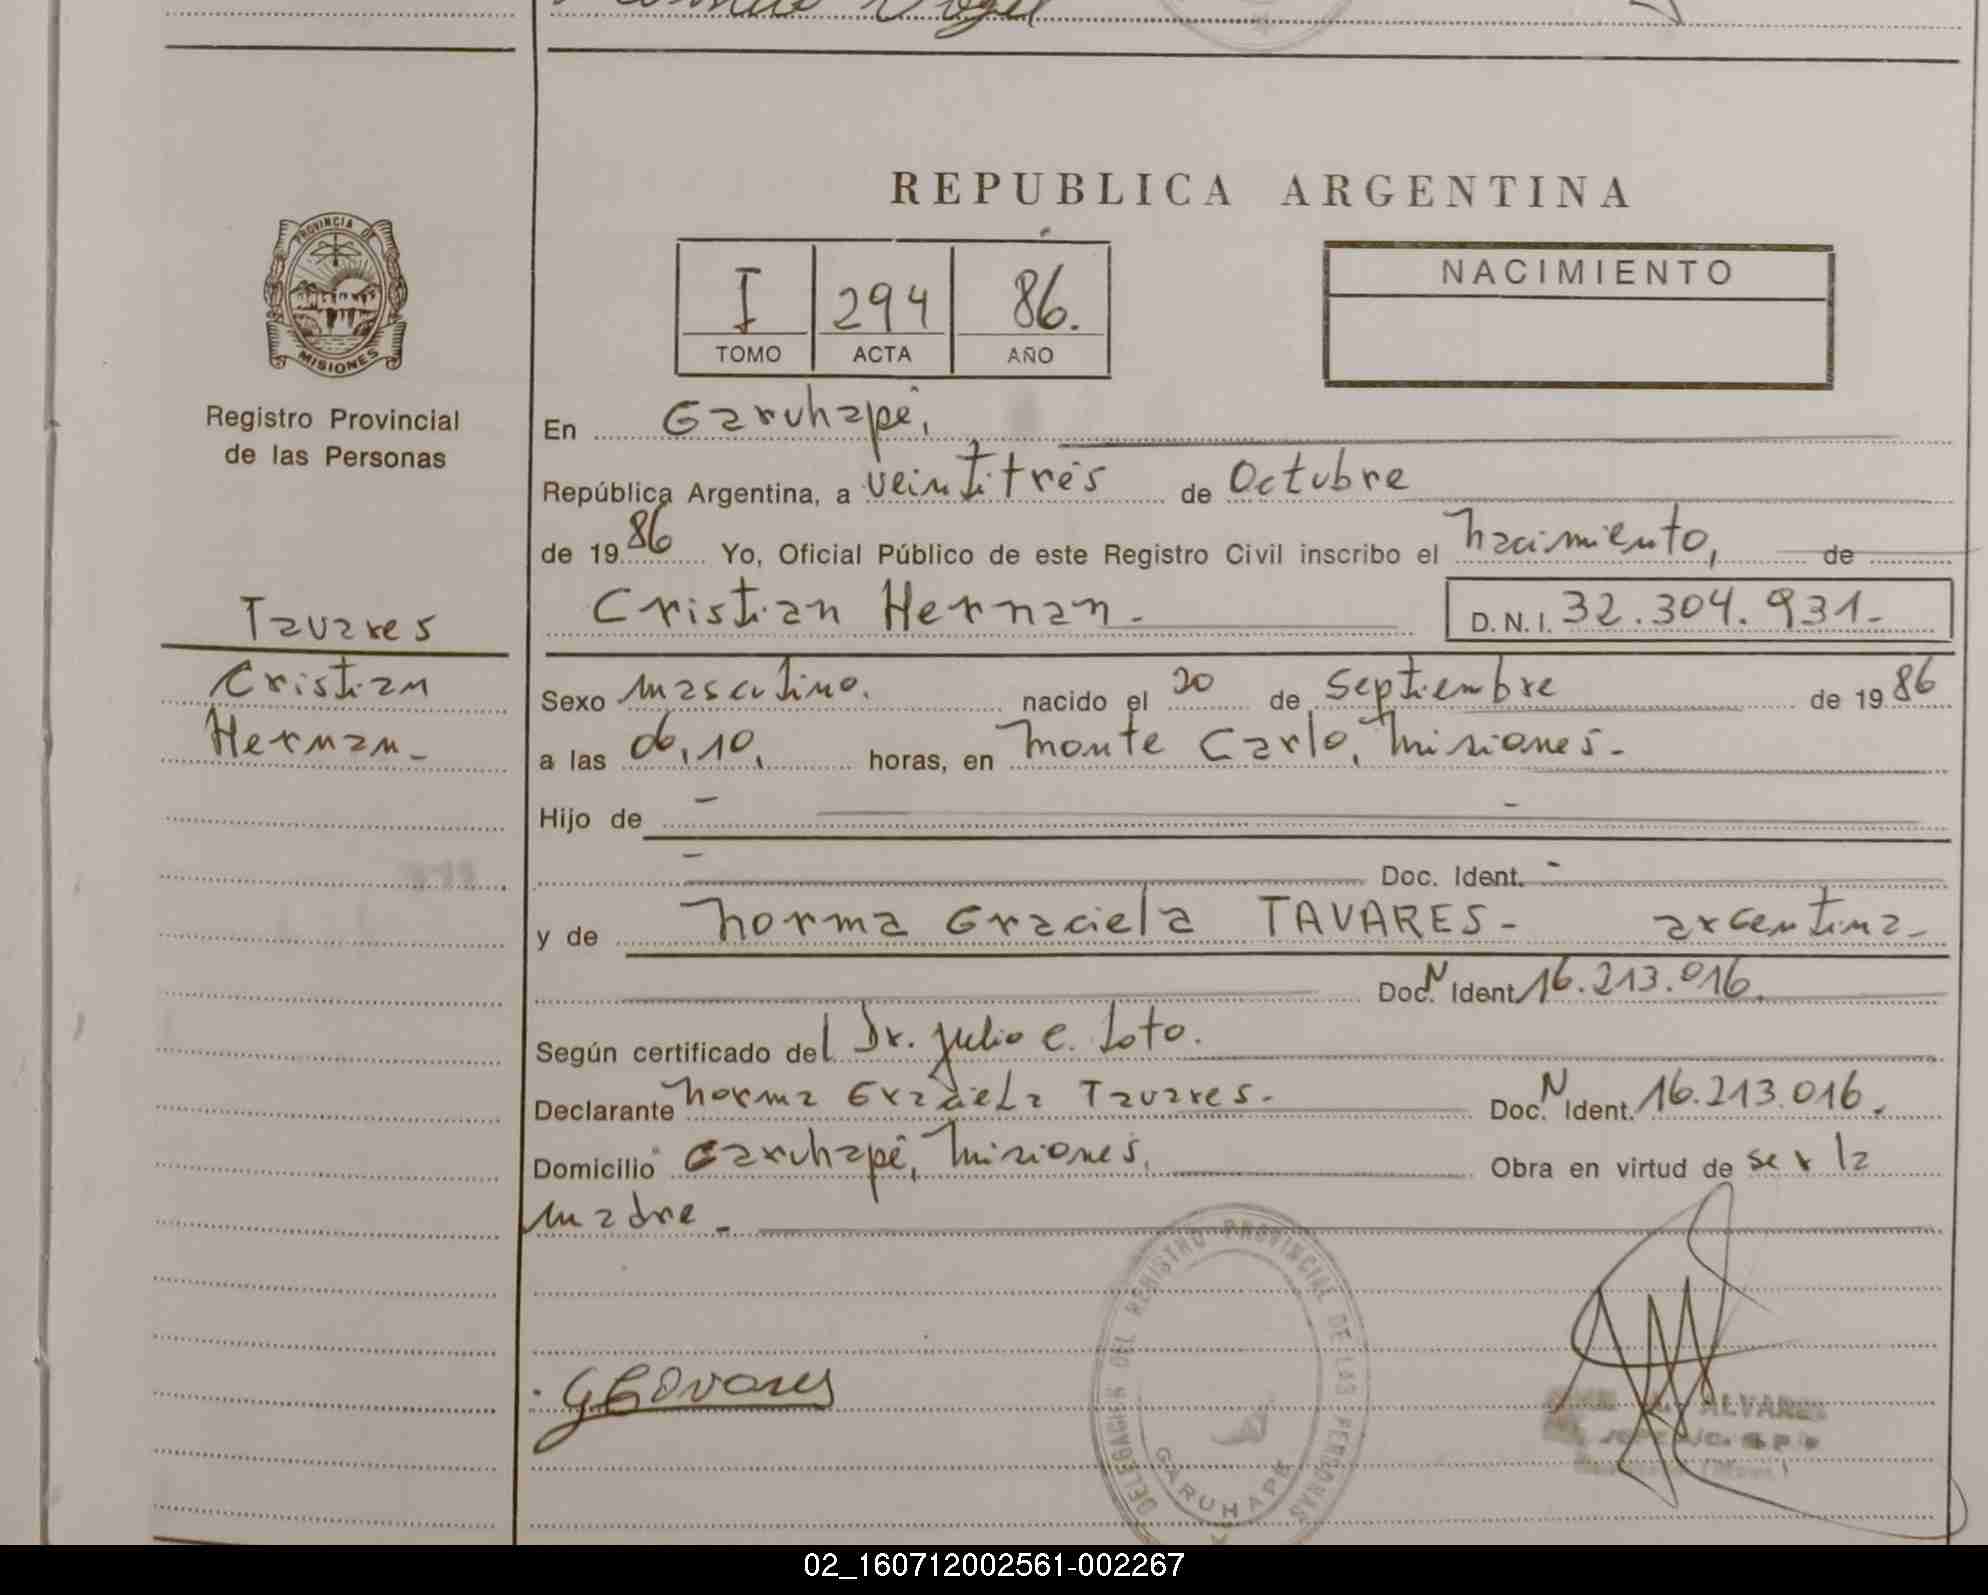 REPUBLICA ARGENTINA
PROVINCIA DE
MISIONES
Registro Provincial
de las Personas
I 294 86.
TOMO ACTA AÑO
NACIMIENTO
En Garuhapé,
República Argentina, a veintitrés de Octubre
de 1986 Yo, Oficial Público de este Registro Civil inscribo el nacimiento, de
Cristian Hernan.- D. N. I. 32.304.931.-
Tavares
Cristian
Hernan.-
Sexo masculino. nacido el 20 de septiembre de 1986
a las 06,10, horas, en Monte Carlo, Misiones.-
Hijo de -
- Doc. Ident. -
y de Norma Graciela TAVARES - argentina-
Doc. N Ident. 16.213.016.
Según certificado del Dr. Julio C. Loto.
Declarante Norma Graciela Tavares.- Doc. N Ident. 16.213.016.
Domicilio Garuhapé, Misiones, Obra en virtud de ser la
madre.-
DELEGACION DEL REGISTRO PROVINCIAL DE LAS PERSONAS
GARUHAPE
ALVAREZ
02_160712002561-002267